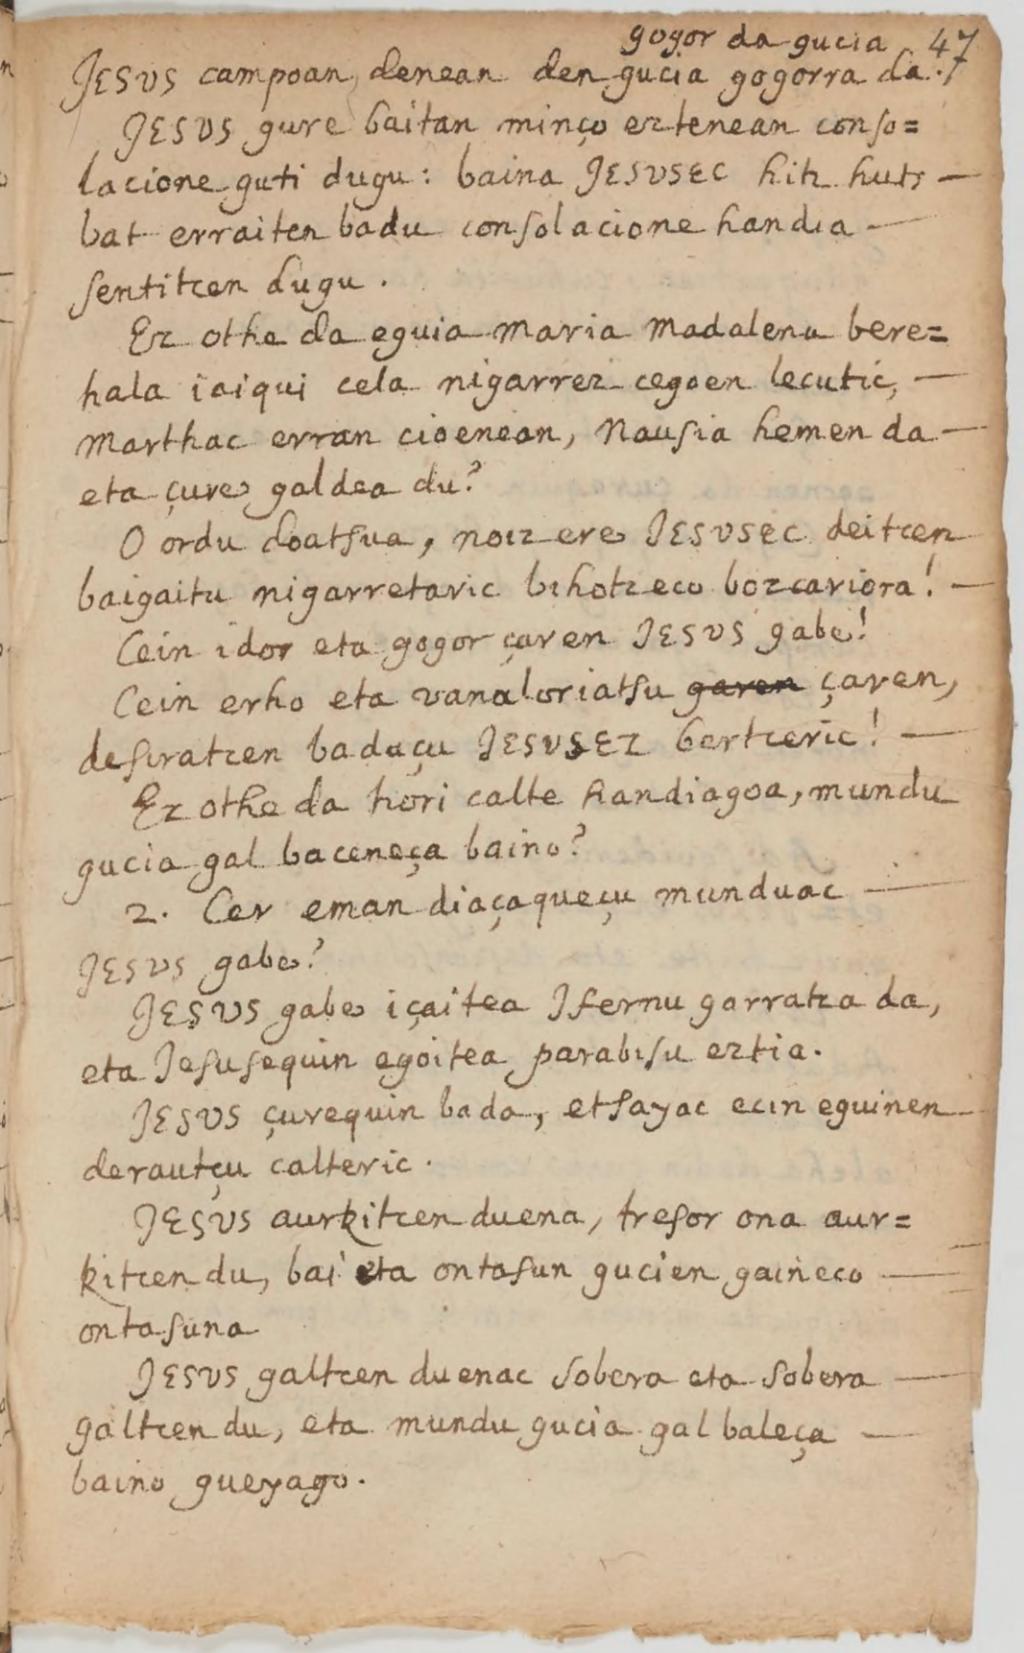 gogor da gucia 47
JESVS campoan denean den gucia gogorra da.
JESVS gure baitan minço eztenean conso=
lacione guti dugu: baina JESVSEC hitz huts —
bat erraiten badu consolacione handia —
sentitcen dugu.
Ez othe da eguia Maria Madalena bere=
hala iaiqui cela nigarrez cegoen lecutic, —
Marthac erran cioenean, Nausia hemen da —
eta çure galdea du?
O ordu doatsua, noiz ere JESVSEC deitcen
baigaitu nigarretaric bihotzeco bozcariora! —
Cein idor eta gogor çaren JESVS gabe!
Cein erho eta vanaloriatsu garen çaren,
desiratcen baduçu JESVSEZ bertceric! —
Ez othe da hori calte handiagoa, mundu
gucia gal baceneça baino?
2. Cer eman diaçaqueçu munduac —
JESVS gabe?
JESVS gabe içaitea Ifernu garratza da,
eta Jesusequin egoitea parabisu eztia.
JESVS çurequin bada, etsayac ecin eguinen
derautçu calteric.
JESVS aurkitcen duena, tresor ona aur=
kitcen du, bai eta ontasun gucien gaineco —
ontasuna
JESVS galtcen duenac sobera eta sobera —
galtcen du, eta mundu gucia gal baleça —
baino gueyago.